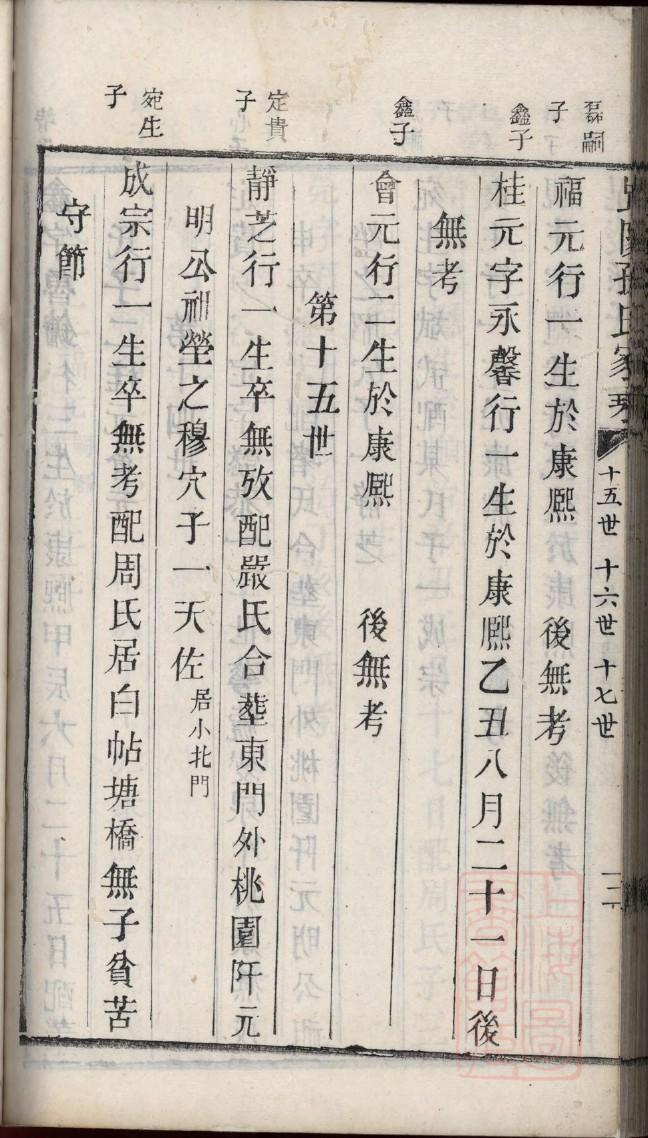 孫氏家乘 十五世 十六世 十七世
磊嗣子
福元行一生於康熈 後無考
鑫子
桂元字永馨行一生於康熈乙丑八月二十一日後
無考
鑫子
會元行二生於康熈 後無考
第十五世
定貴子
靜芝行一生卒無攷配嚴氏合塟東門外桃園阡元
明公祖塋之穆穴子一天佐居小北門
宛生子
成宗行一生卒無考配周氏居白帖塘橋無子貧苦
守節